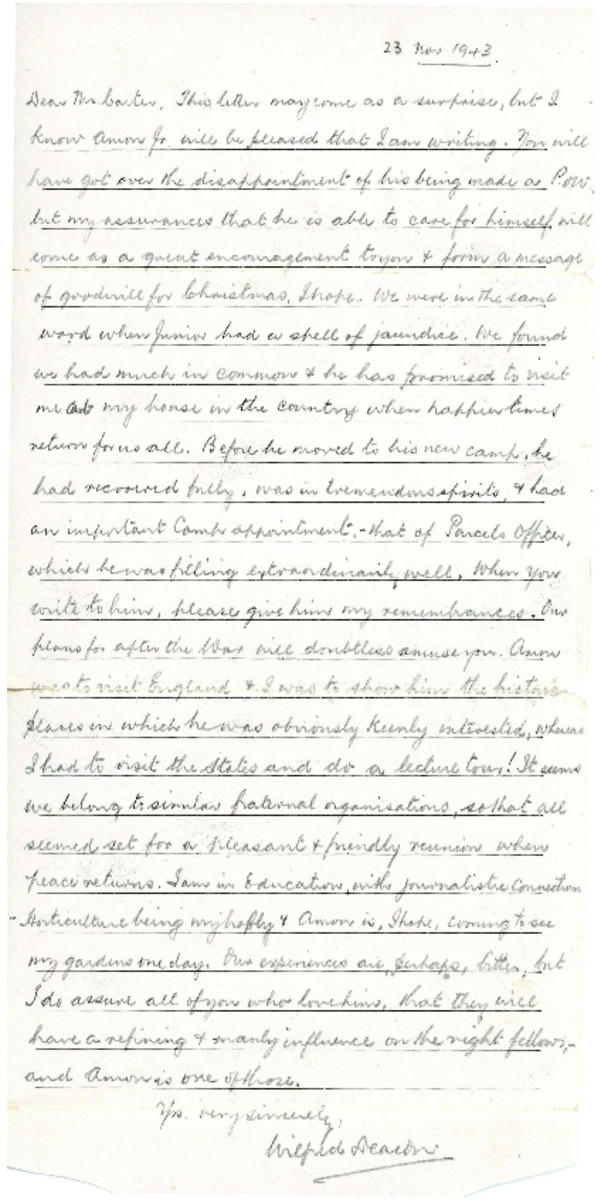 23 Nov 1943.
Dear Mr Carter, This letter may come as a surprise, but I
know Amon Jr. will be pleased that I am writing. You will
have got over the disappointment of his being made a P.O.W.
but my assurances that he is able to care for himself will
come as a great encouragement to you & form a message
of goodwill for Christmas, I hope. We were in the same
ward when Junior had a spell of jaundice. We found
we had much in common & he has promised to visit
me at my house in the country when happier times
return for us all. Before he moved to his new camp, he
had recovered fully, was in tremendous spirits, & had
an important Camp appointment, - that of Parcels Officer,
which he was filling extraordinarily well. When you
write to him, please give him my remembrances. Our
plans for after the War will doubtless amuse you. Amon
was to visit England & I was to show him the historic
places in which he was obviously keenly interested, whereas
I had to visit the States and do a lecture tour! It seems
we belong to similar fraternal organisations, so that all
seemed set for a pleasant & friendly reunion when
peace returns. I am in Education, with journalistic connection
- Horticulture being my hobby & Amon is, I hope, coming to see
my gardens one day. Our experiences are, perhaps, bitter, but
I do assure all of you who love him, that they will
have a refining & manly influence on the right fellows, -
and Amon is one of those.
Yrs. very sincerely,
Wilfred Deacon